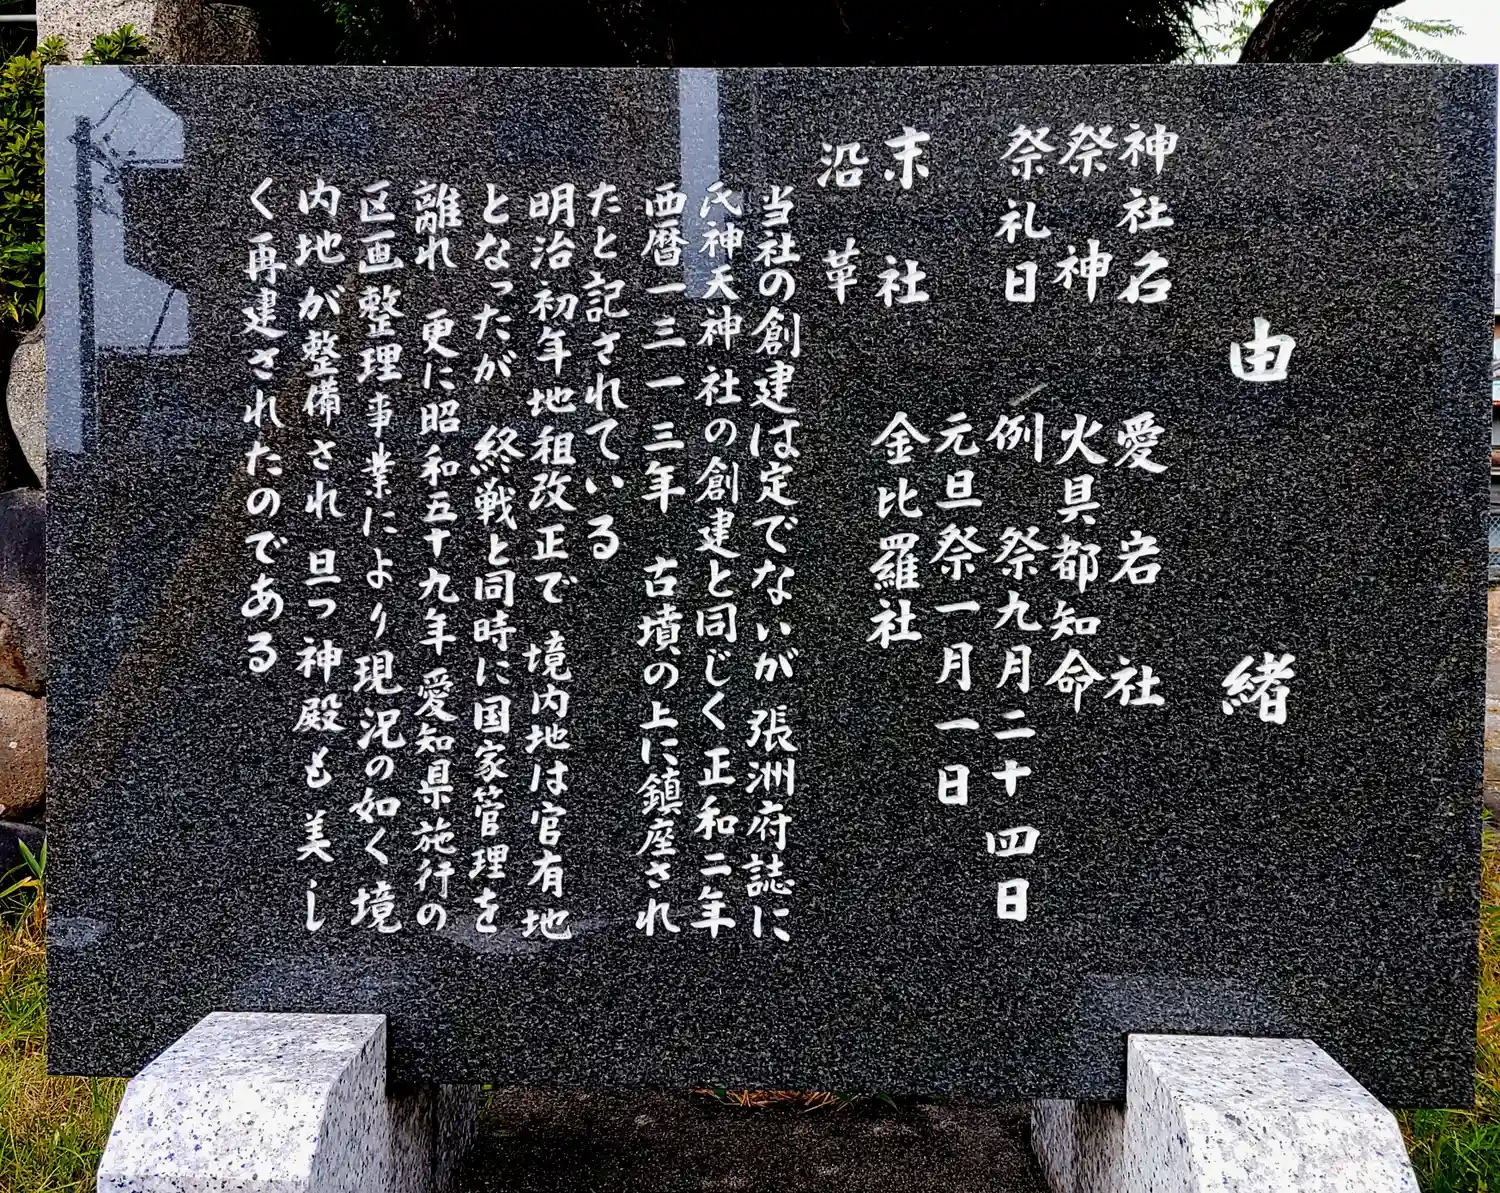 由緒
神社名 愛宕社
祭神 火具都知命
祭礼日 例祭九月二十四日
元旦祭一月一日
末社 金比羅社
沿革
当社の創建は定でないが 張洲府誌に
氏神天神社の創建と同じく正和二年
西暦一三一三年 古墳の上に鎮座され
たと記されている
明治初年地租改正で 境内地は官有地
となったが 終戦と同時に国家管理を
離れ 更に昭和五十九年愛知県施行の
区画整理事業により現況の如く境
内地が整備され 旦つ神殿も美し
く再建されたのである